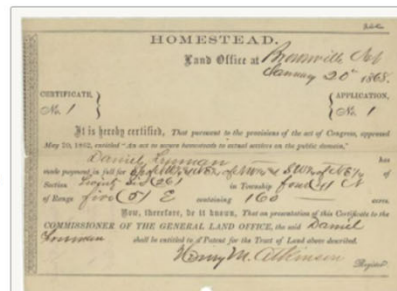 HOMESTEAD.
Land Office at Brownville, Neb
January 20th 1868.
CERTIFICATE, No. 1 } { APPLICATION, No. 1
It is hereby certified, That pursuant to the provisions of the act of Congress, approved
May 20, 1862, entitled "An act to secure homesteads to actual settlers on the public domain,"
Daniel has
made payment in full for of
Section Twenty Six (26) in Township four (4) N
of Range five (5) E containing 160 acres.
Now, therefore, be it known, That on presentation of this Certificate to the
COMMISSIONER OF THE GENERAL LAND OFFICE, the said Daniel
shall be entitled to a Patent for the Tract of Land above described.
Henry M. Atkinson
Register